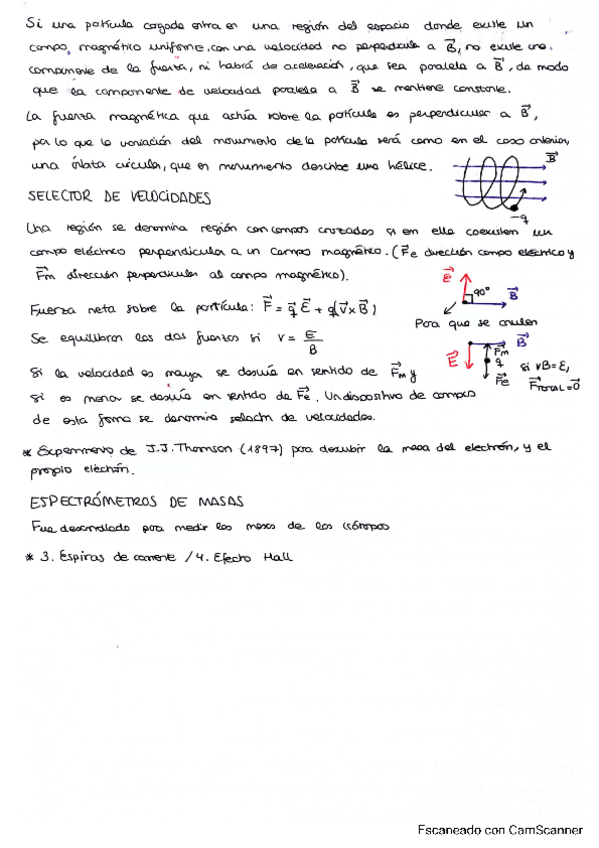 Si una partícula cargada entra en una región del espacio donde existe un
campo, magnético uniforme, con una velocidad no perpendicular a B⃗, no existe una
componente de la fuerza, ni habrá de aceleración, que sea paralela a B⃗, de modo
que la componente de velocidad paralela a B⃗ se mantiene constante.
La fuerza magnética que actúa sobre la partícula es perpendicular a B⃗,
por lo que la variación del movimiento de la partícula será como en el caso anterior,
una órbita circular, que en movimiento describe una hélice.
B⃗
-q
SELECTOR DE VELOCIDADES
Una región se denomina región con campos cruzados si en ella coexisten un
campo eléctrico perpendicular a un campo magnético. (F⃗e dirección campo eléctrico y
F⃗m dirección perpendicular al campo magnético).
E⃗
90°
B⃗
Fuerza neta sobre la partícula: F⃗ = q⃗ E⃗ + q(v⃗ x B⃗)
Para que se anulen
Se equilibran las dos fuerzas si v = E/B
B⃗
E⃗
Fm
q
F⃗e
si vB=E,
F⃗TOTAL=0
Si la velocidad es mayor se desvía en sentido de F⃗m y
si es menor se desvía en sentido de F⃗e. Un dispositivo de campos
de esta forma se denomina selector de velocidades.
* Experimento de J.J. Thomson (1897) para descubrir la masa del electrón, y el
propio electrón.
ESPECTRÓMETROS DE MASAS
Fue desarrollado para medir las masas de los isótopos
* 3. Espiras de corriente / 4. Efecto Hall
Escaneado con CamScanner